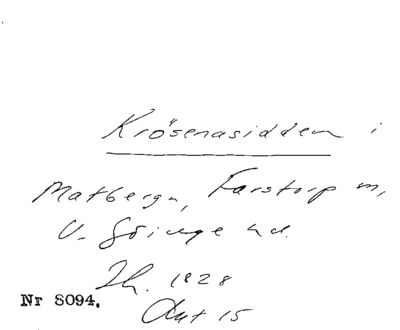 Krösenasidden i
Matbergn, Farstorp m,
V. Göinge hd.
Th. 1828
Nr 8094.
Aut 15